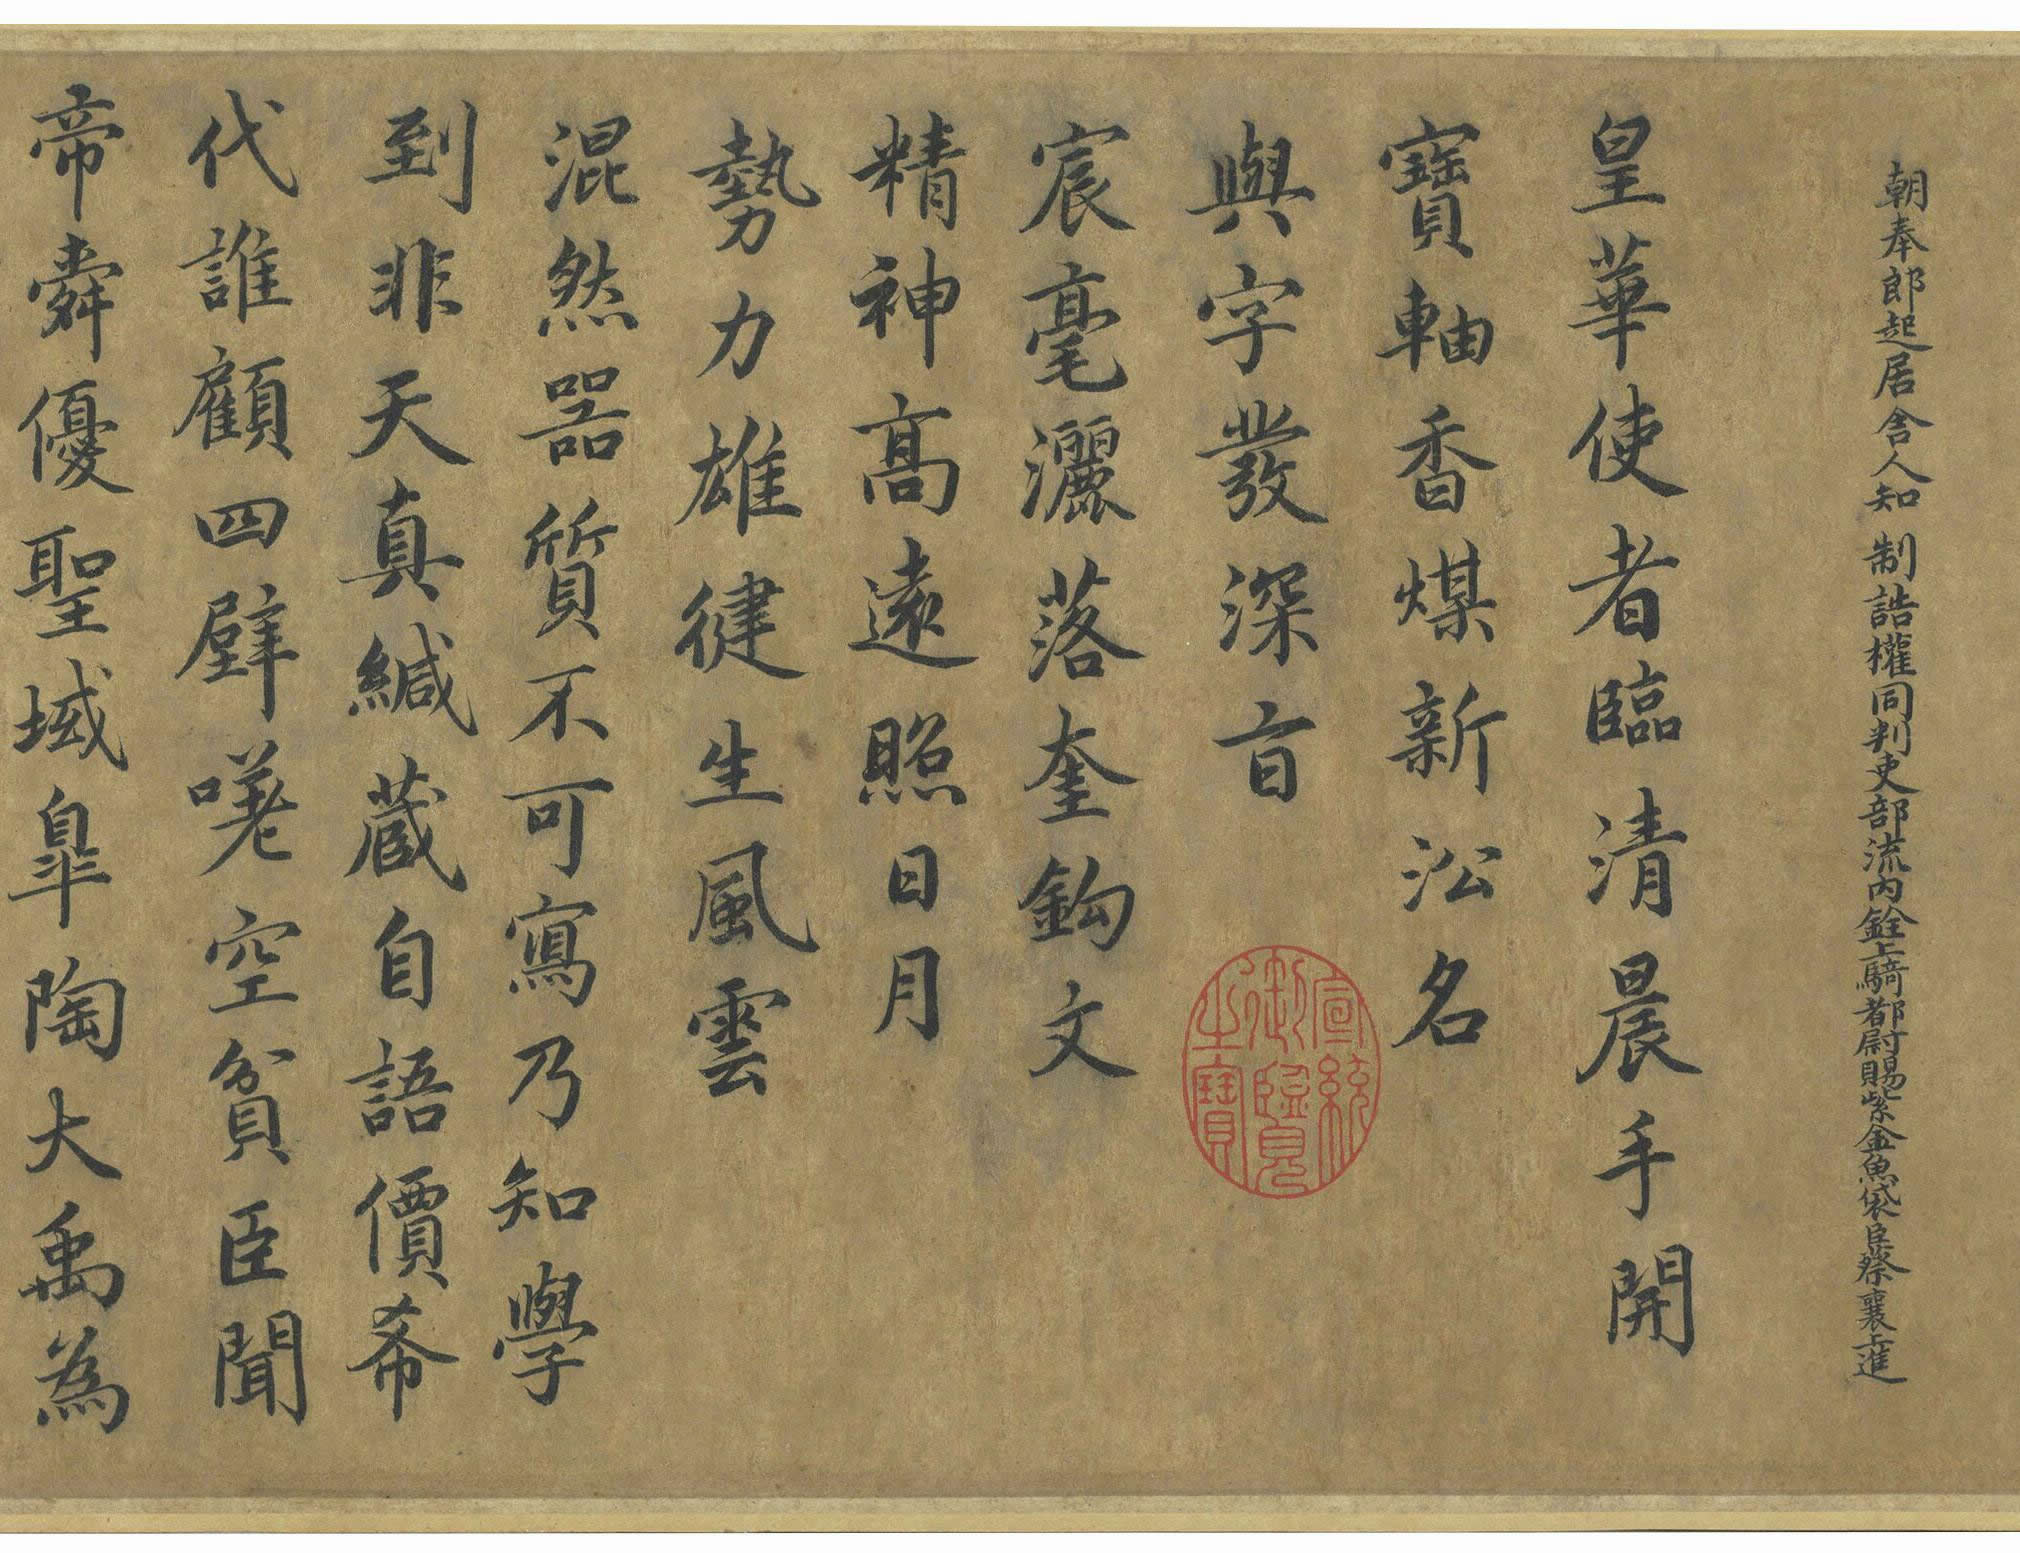 朝奉郎起居舍人知 制誥權同判吏部流內銓上騎都尉賜紫金魚袋臣蔡襄上進
皇華使者臨清晨手開
寶軸香煤新㳂名
與字發深旨
宸毫灑落奎鈎文
精神高遠照日月
勢力雄健生風雲
混然器質不可寫乃知學
到非天真緘藏自語價希
代誰顧四壁嗟空貧臣聞
帝舜優聖域皋陶大禹為
宣統御覽之寶